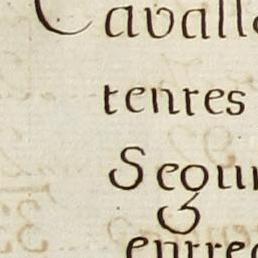 Cavall
tenres
Segu
enrre